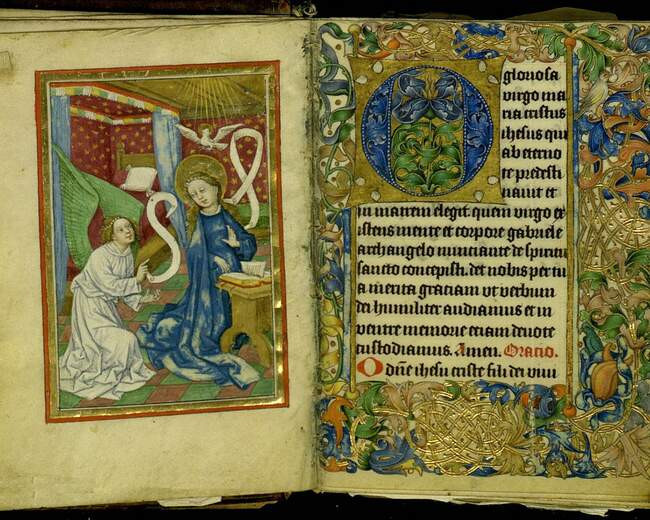 O gloriosa
virgo ma
ria cristus
ihesus qui
ab eterno
te predesti
navit et
in matrem elegit quem virgo ex
istens mente et corpore gabriele
archangelo nunciante de spiritu
sancto concepisti. det nobis per tu
a merita graciam ut verbum
dei humiliter audiamus et in
ventre memorie eciam devote
custodiamus. Amen. Oracio.
O dn̄e ihesu criste fili dei vivi